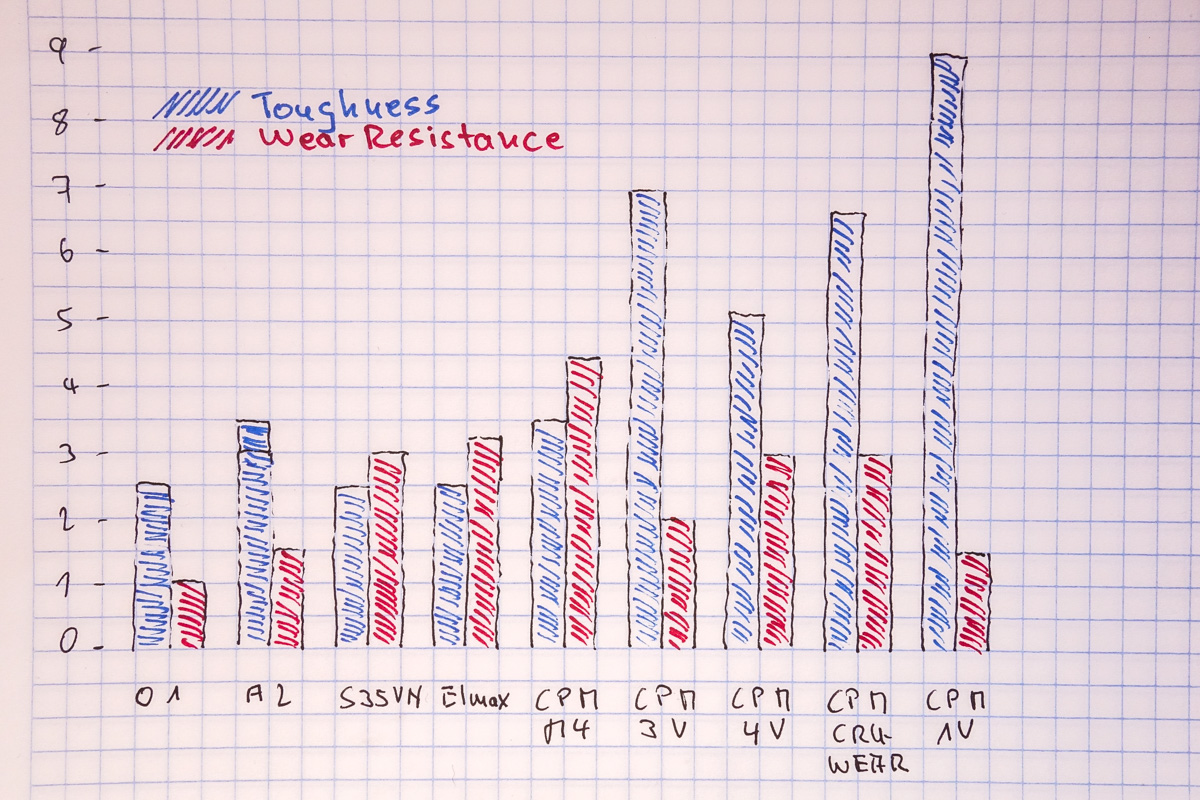 9
8
7
6
5
4
3
2
1
0
Toughness
Wear Resistance
O1
A2
S35VN
Elmax
CPM
M4
CPM
3V
CPM
4V
CPM
CRU-
WEAR
CPM
1V